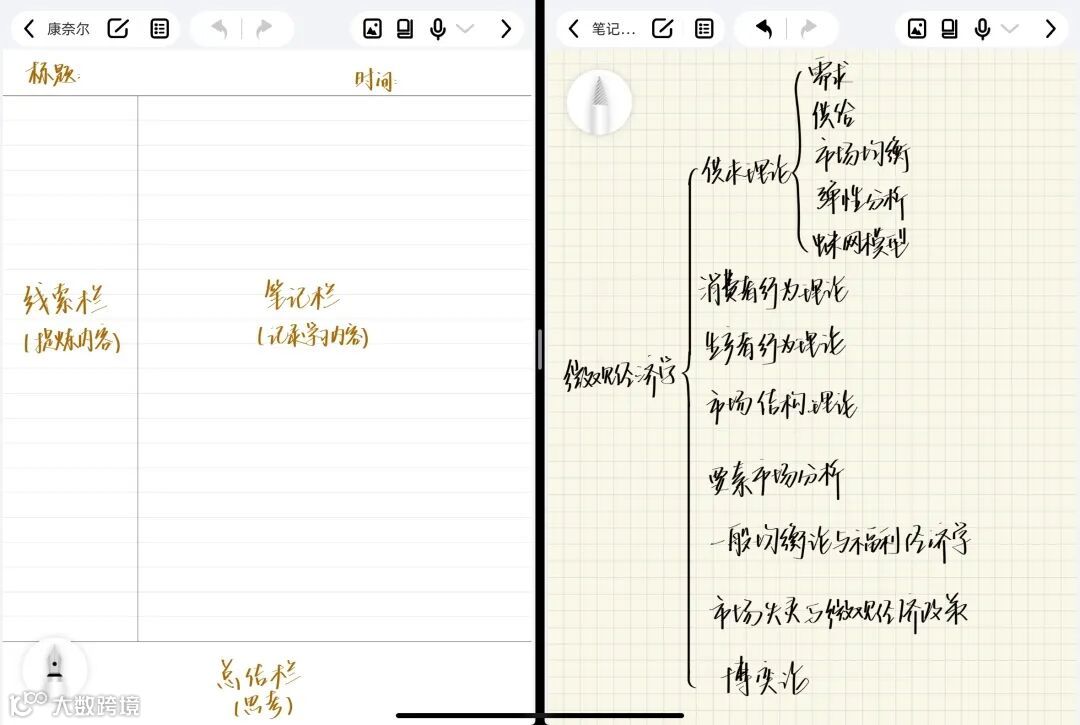 康奈尔
标题:
时间:
线索栏
(提炼内容)
笔记栏
(记录学习内容)
总结栏
(思考)
大数跨境
笔记...
微观经济学
供求理论
需求
供给
市场均衡
弹性分析
蛛网模型
消费者行为理论
生产者行为理论
市场结构理论
要素市场分析
一般均衡论与福利经济学
市场失灵与微观经济政策
博弈论